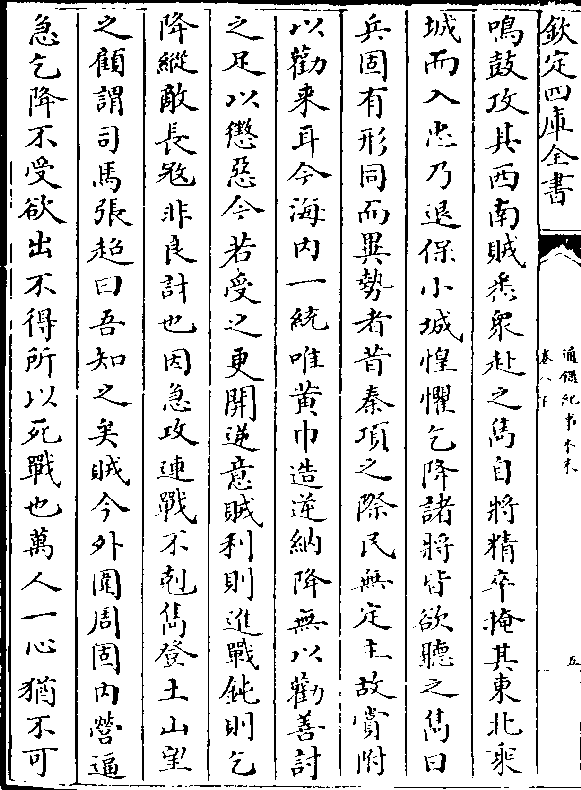 欽定四庫全書
通鑑紀事本末
卷八下
五
鳴鼓攻其西南賊悉衆赴之雋自將精卒掩其東北乘
城而入忠乃退保小城惶懼乞降諸將皆欲聽之雋曰
兵固有形同而異勢者昔秦項之際民無定主故賞附
以勸来耳今海内一統唯黄巾造逆納降無以勸善討
之足以懲惡今若受之更開逆意賊利則進戰鈍則乞
降縱敵長寇非良計也因急攻連戰不剋雋登土山望
之顧謂司馬張超曰吾知之矣賊今外圍周固内營逼
急乞降不受欲出不得所以死戰也萬人一心猶不可